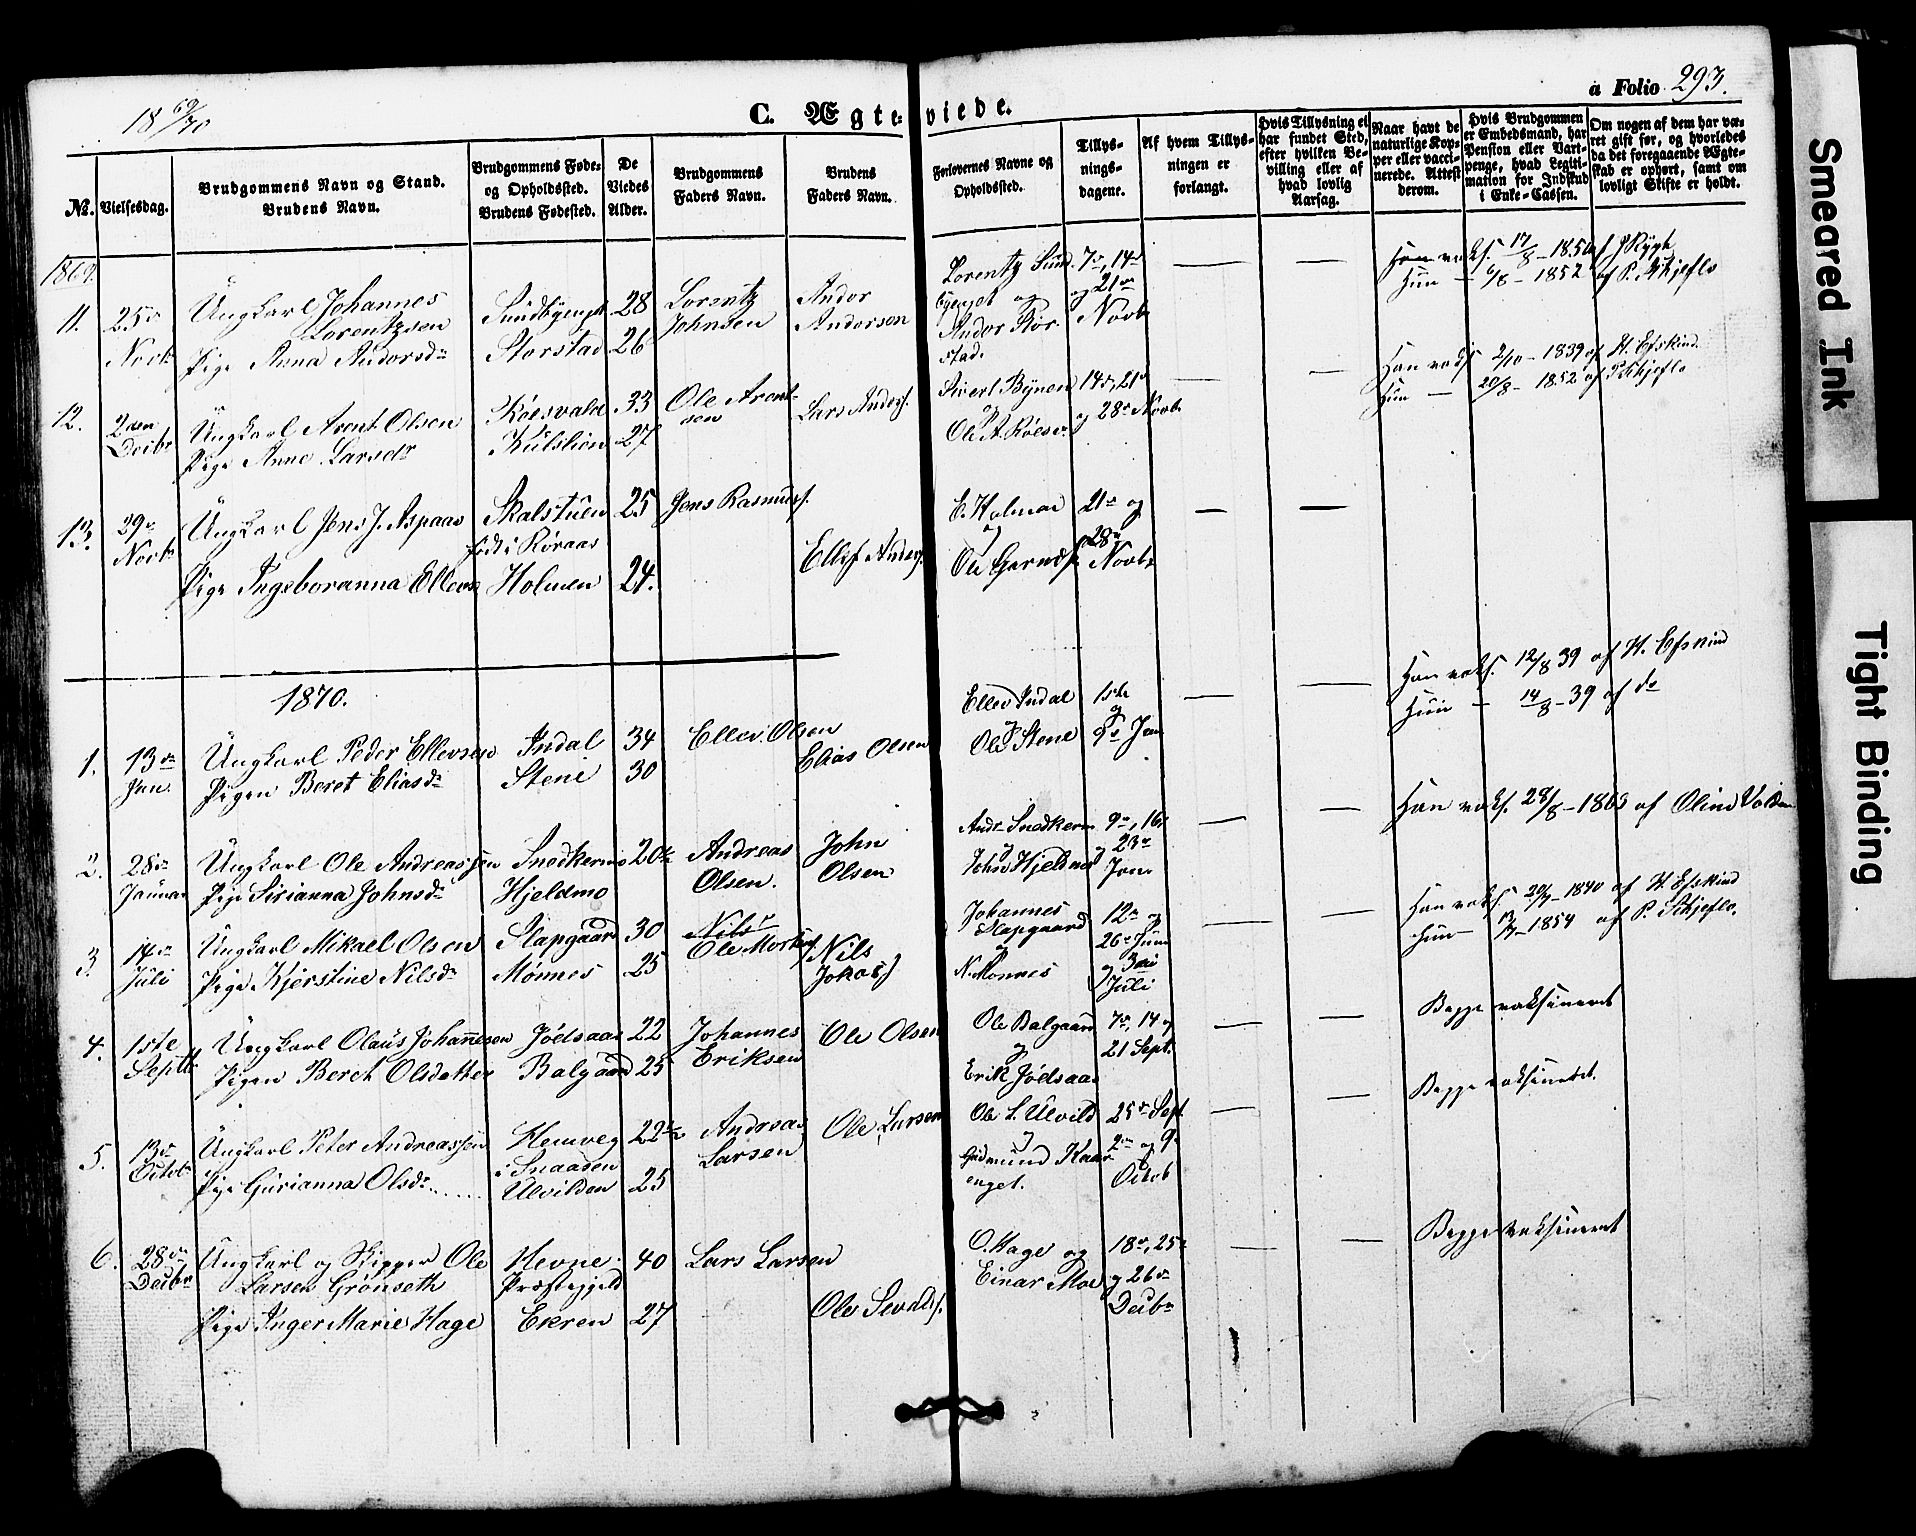 18 69/70
C. Ægteviede.
a Folio 293.
No.
Vielsesdag.
Brudgommens Navn og Stand.
Brudens Navn.
Brudgommens Føde-
og Opholdssted.
Brudens Fødested.
De
Viedes
Alder.
Brudgommens
Faders Navn.
Brudens
Faders Navn.
Forlovernes Navne og
Opholdssted.
Tillys-
nings-
dagene.
Af hvem Tillys-
ningen er
forlangt.
Hvis Tillysning ei
har fundet Sted,
efter hvilken Be-
villing eller af
hvad lovlig
Aarsag.
Naar havt de
naturlige Kop-
per eller vacci-
nerede. Attest
derom.
Hvis Brudgommen
er Embedsmand, har
Pension eller Vart-
penge, hvad Legiti-
mation for Indskud
i Enke-Cassen.
Om nogen af dem har væ-
ret gift før, og hvorledes
da det foregaaende Ægte-
skab er ophørt, samt om
lovligt Skifte er holdt.
1869.
11. 25de Novbr
Ungkarl Johannes
Lorentzsen
Pige Anna Andorsdr
Sundbyengt 28
Storstad 26
Lorentz
Johnsen
Andor
Anderson
Lorentz Sund-
byengt og
Andor Stor-
stad.
7de, 14de
og 21de
Novbr
Han vaks. 17/8 - 1850 af J Rygh
Hun — 6/8 - 1852 af P. Skjeflo
12. 2den Decbr
Ungkarl Arent Olsen
Pige Anne Larsdr
Röesvald 33
Kulslien 27
Ole Arent-
sen
Lars Anders.
Sivert Bÿnen
og
Ole A. Röesv.
14de, 21de
og 28de Novbr
Han vaks 2/10 - 1839 af H. Efskind.
Hun — 20/8 - 1852 af P Skjeflo
13. 29de Novbr
Ungkarl Jens J. Aspaas
Pige Ingeboranna Ellevs
Skalstuen 25
født i Röraas
Holmen 24.
Jens Rasmuss.
Ellef Anders.
E. Holmen
og
21de og
28de
Novbr
1870.
1. 13de Jan.
Ungkarl Peder Ellevsen
Pigen Beret Eliasdr
Indal 34
Stene 30
Ellev. Olsen
Elias Olsen
Ellev Indal
og
Ole Stene
1ste
og
9de Jan
Han vaks. 12/8 39 af H. Efskind
Hun — 14/8 - 39 af do
2. 28de Januar
Ungkarl Ole Andreassen
Pige Sirianna Johnsdr
Snedkermo 20½
Hjeldmo
Andreas
Olsen.
John
Olsen
Andr Snedkerm
og
John Hjeldmo
9de, 16de
og 23de
Jan.
Han vaks. 28/8 - 1863 af Oline Volden
3. 14de Juli
Ungkarl Mikael Olsen
Pige Kjerstine Nilsdr
Slapgaard 30
Mönnes 25
Nils
Ole Mortens.
Nils
Jakobs.
Johannes
Slapgaard
og
N. Monnes
12de og
26de Juni
og 3die
Juli
Han vaks. 20/9 - 1840 af H. Efskind
Hun — 1854 af P. Skjeflo.
4. 1ste Septbr
Ungkarl Olaus Johannesen
Pigen Beret Olsdatter
Jödsaas 22
Balgaard 25
Johannes
Eriksen
Ole Olsen
Ole Balgaard
og
Erik Jödsaas
7de, 14 og
21 Sept.
Begge vaksineret
5. 13de Octobr
Ungkarl Peter Andreassen
Pige Gurianna Olsdr
Hemveg 22½
i Snaasen
Ulvilden 25
Andreas
Larsen
Ole Larsen
Ole L. Ulvild
og
Gudmund Kaar-
enget.
25de Sept
2den og 9de
Octob
Begge vaksineret.
6. 28de Decbr
Ungkarl og Skipper Ole
Larsen Grönseth
Pige Inger Marie Hage
Hevne 40
Præstegjeld
Ekren 27
Lars Larsen
Ole Sevalds.
O. Hage og
Einar Moe
18de, 25de
og 26de
Decbr
Begge vaksineret
Smeared Ink
Tight Binding